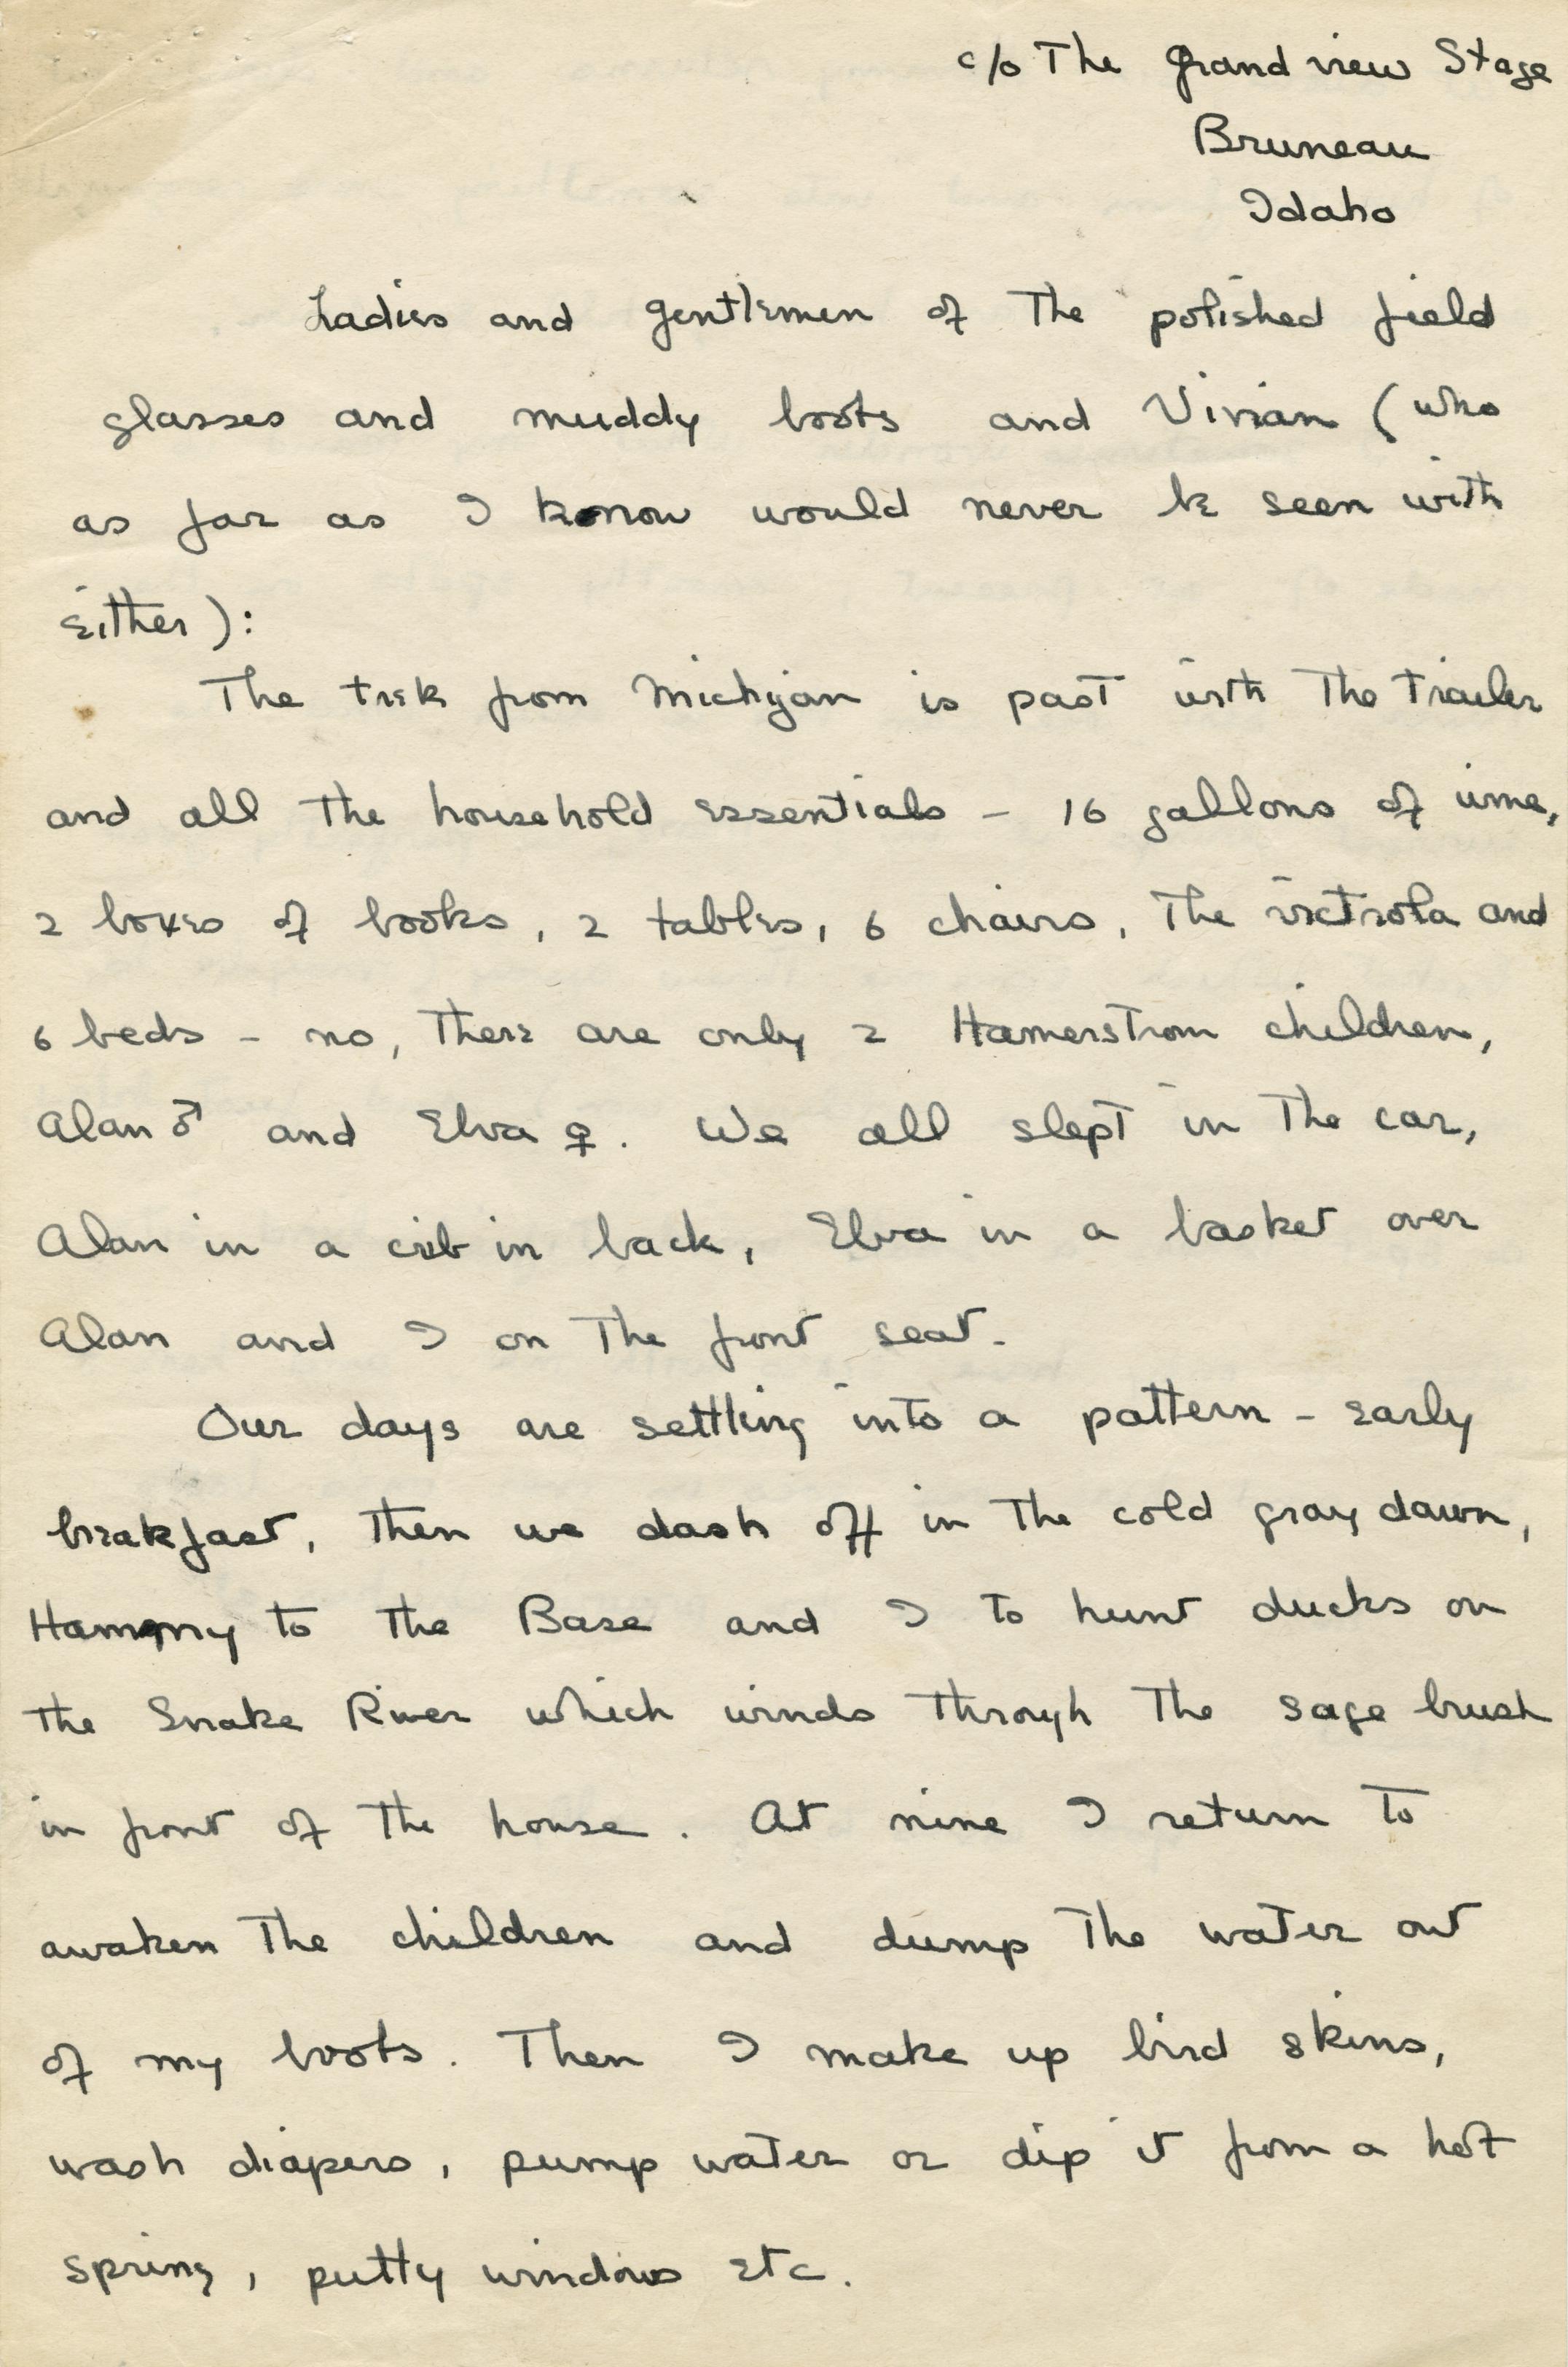 c/o The Grandview Stage
Bruneau
Idaho
Ladies and gentlemen of the polished field
glasses and muddy boots and Vivian (who
as far as I know would never be seen with
either):
The trek from Michigan is past with the trailer
and all the household essentials – 16 gallons of wine,
2 boxes of books, 2 tables, 6 chairs, the victrola and
6 beds – no, there are only 2 Hamerstrom children,
Alan ♂ and Elva ♀. We all slept in the car,
Alan in a crib in back, Elva in a basket over
Alan and I on the front seat.
Our days are settling into a pattern – early
breakfast, then we dash off in the cold gray dawn,
Hammy to the Base and I to hunt ducks on
the Snake River which winds through the sage brush
in front of the house. At nine I return to
awaken the children and dump the water out
of my boots. Then I make up bird skins,
wash diapers, pump water or dip it from a hot
spring, putty windows etc.